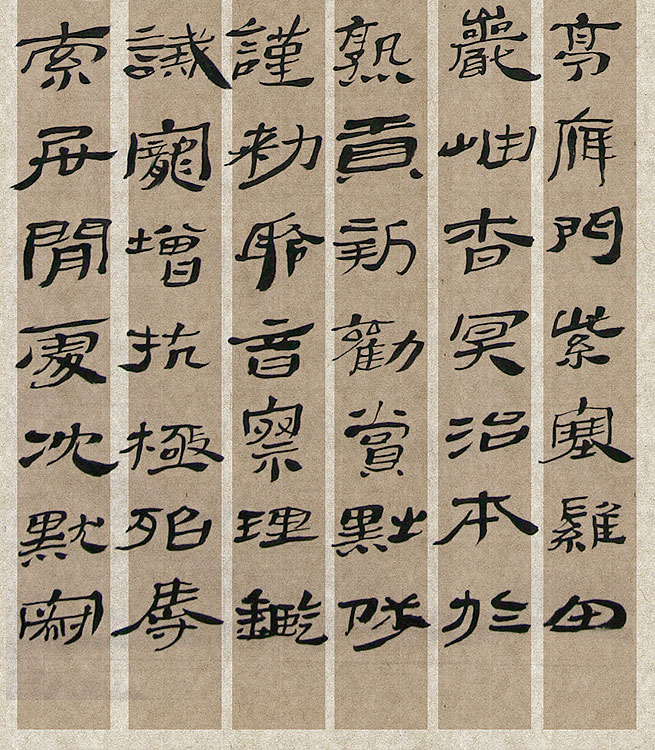 亭雁門紫塞雞田
巖岫杳冥治本於
熟貢新勸賞黜陟
謹勑聆音察理鑑
誡寵增抗極殆辱
索居閒處沈默寂